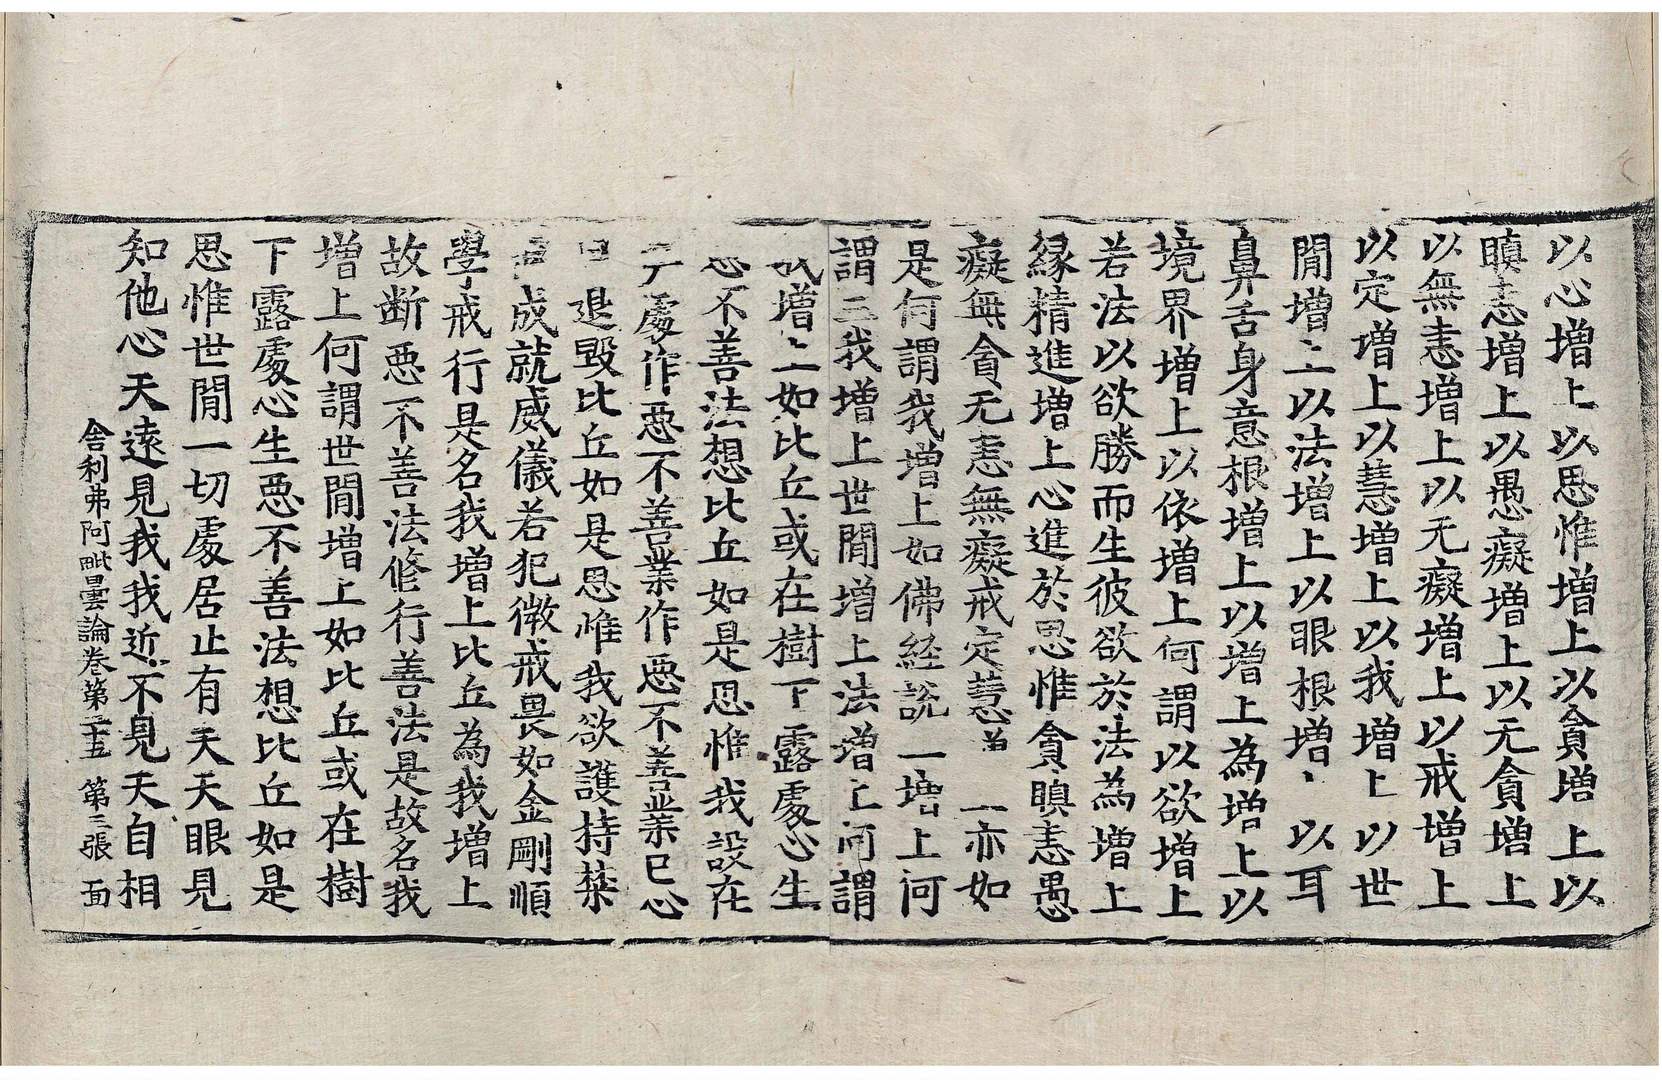 以心增上以思惟增上以貪增上以
瞋恚增上以愚癡增上以无貪增上
以無恚增上以无癡增上以戒增上
以定增上以慧增上以我增上以世
間增上以法增上以眼根增上以耳
鼻舌身意根增上以增上為增上以
境界增上以依增上何謂以欲增上
若法以欲勝而生彼欲於法為增上
緣精進增上心進於思惟貪瞋恚愚
癡無貪无恚無癡戒定慧 亦如
是何謂我增上如佛経說 増上何
謂三我增上世間增上法增上何謂
我增上如比丘或在樹下露處心生
惡不善法想比丘如是思惟我設在
處作惡不善業作惡不善業已心
退毀比丘如是思惟我欲護持禁
成就威儀若犯微戒畏如金剛順
學戒行是名我增上比丘為我增上
故断惡不善法修行善法是故名我
增上何謂世間增上如比丘或在樹
下露處心生惡不善法想比丘如是
思惟世間一切處居止有天天眼見
知他心天遠見我我近不見天自相
舍利弗阿毗曇論卷第二十五 第三張 面